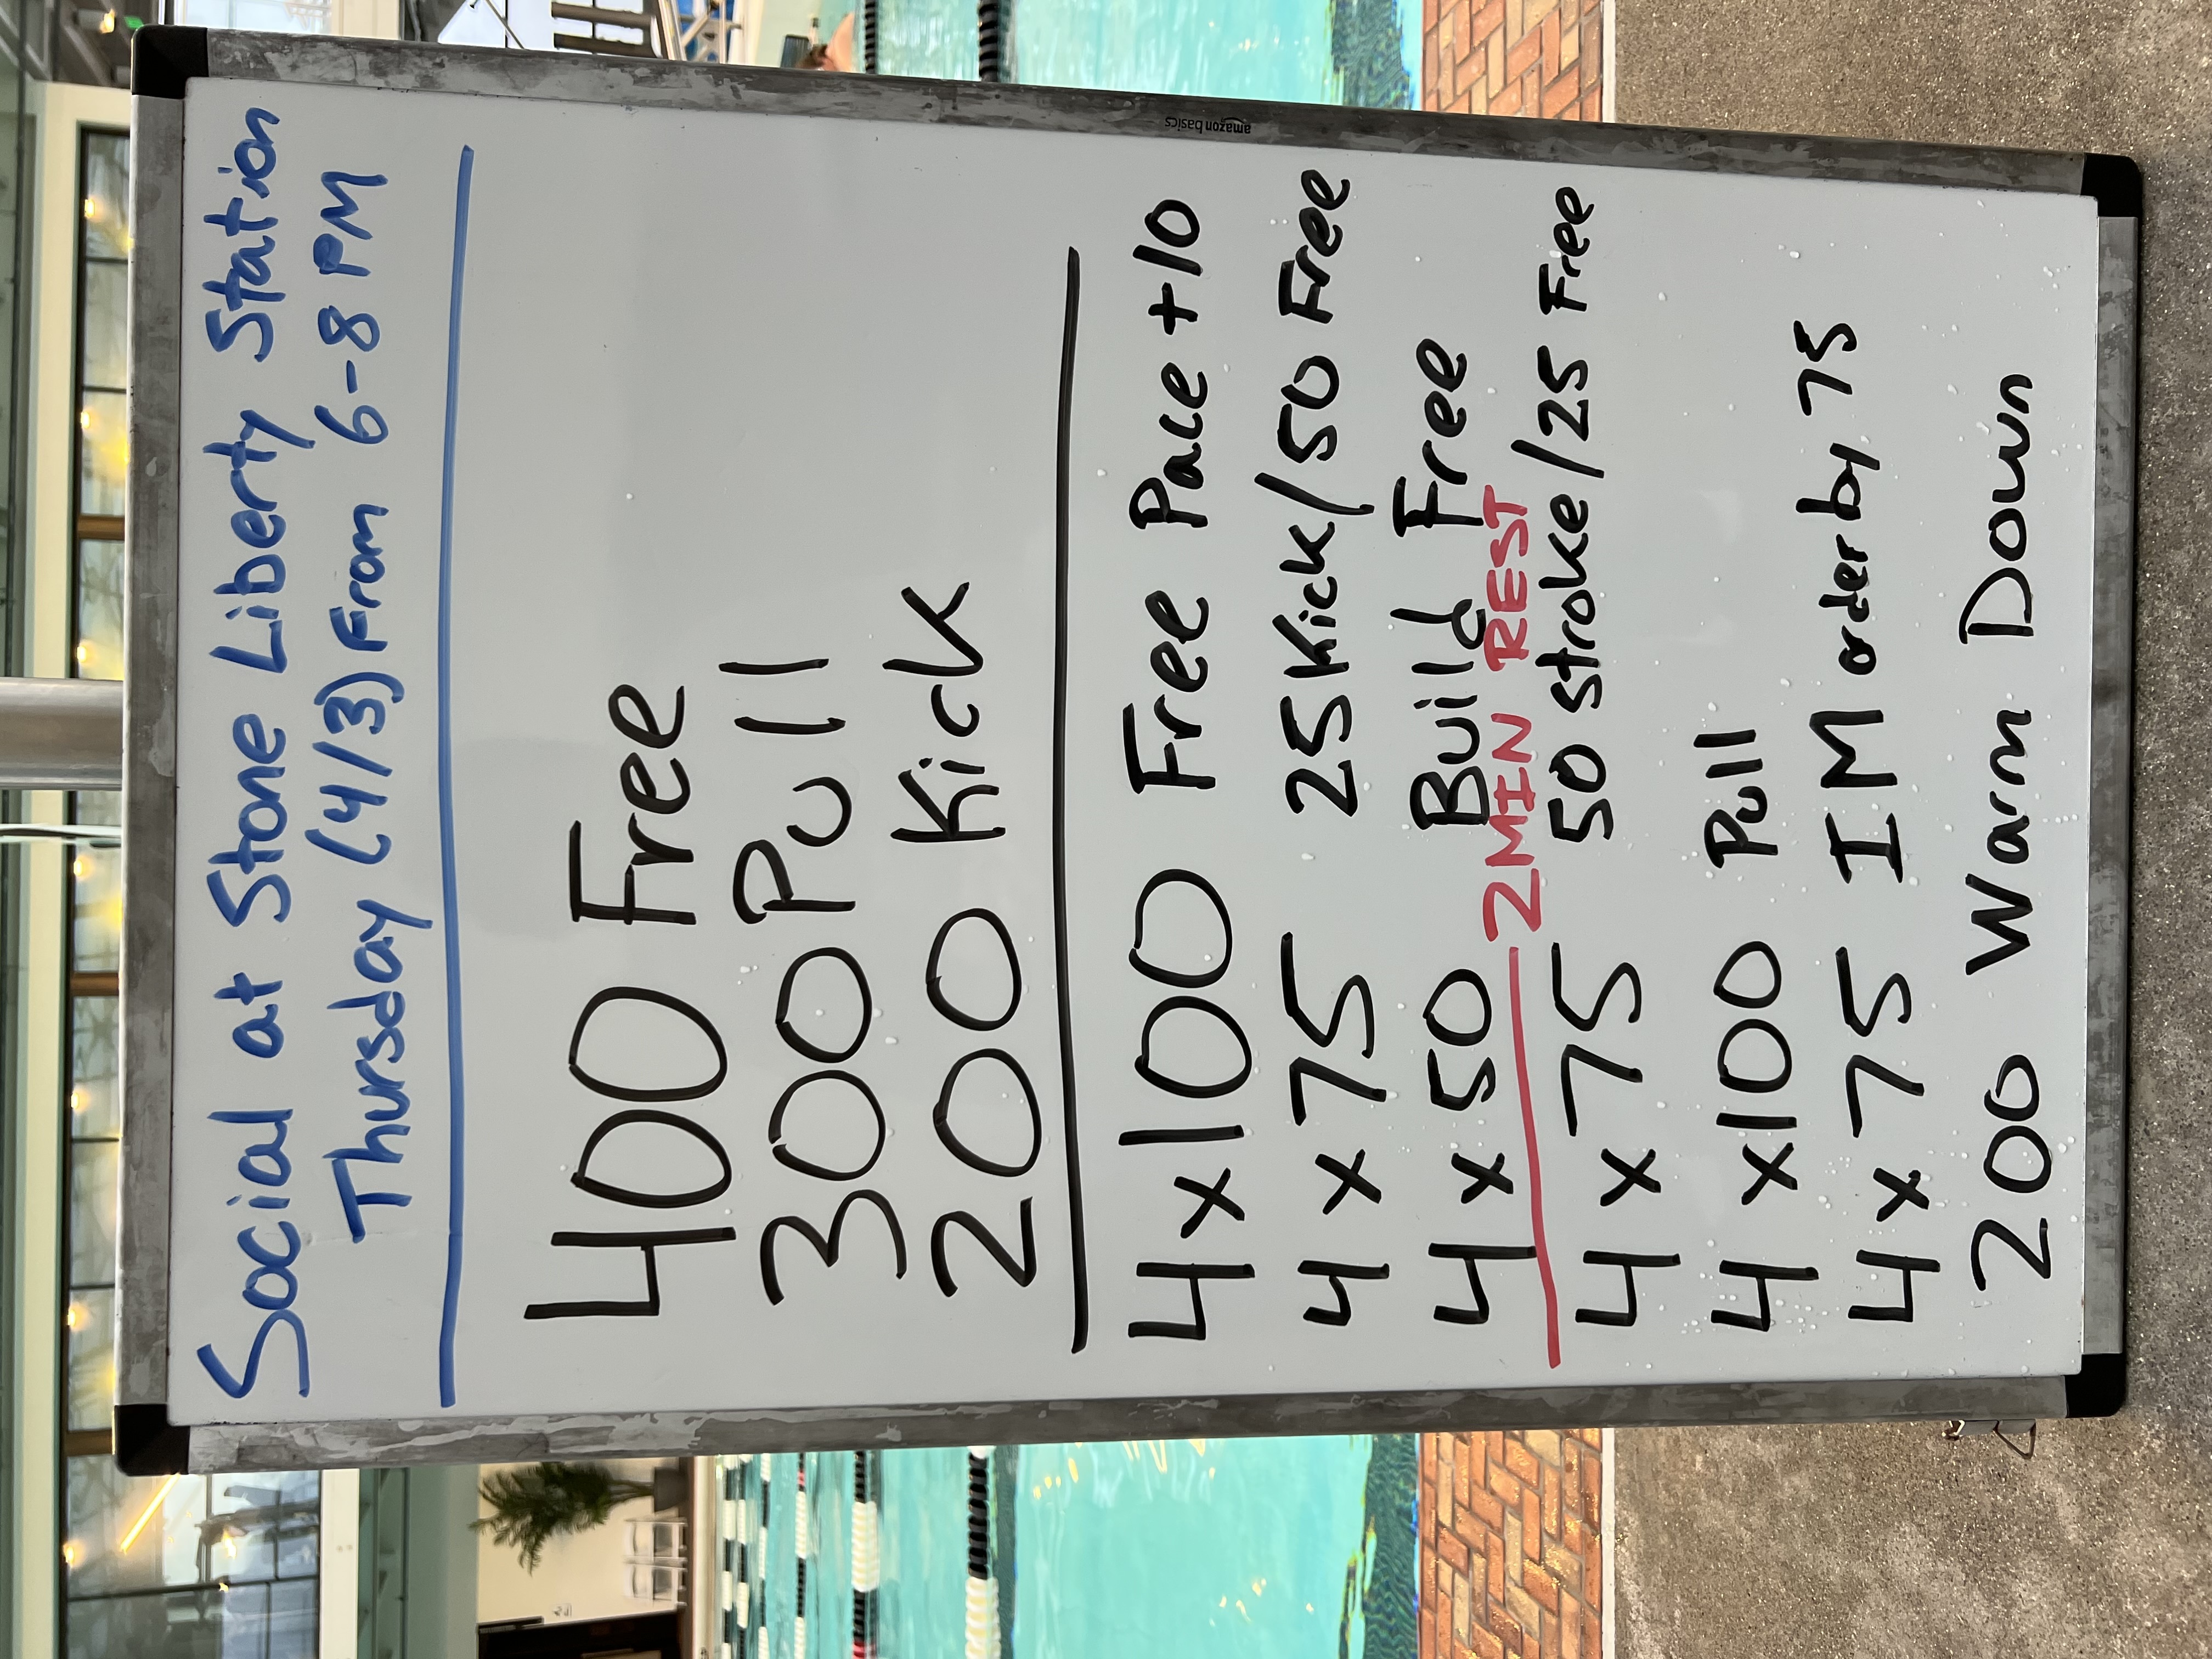 Social at Stone Liberty Station
Thursday (4/3) From 6-8 PM
400 Free
300 Pull
200 Kick
4 x 100 Free Pace +10
4 x 75 25 Kick/50 Free
4 x 50 Build Free
2 MIN REST
4 x 75 50 stroke/25 Free
4 x 100 Pull
4 x 75 IM order by 75
200 Warm Down
amazon basics